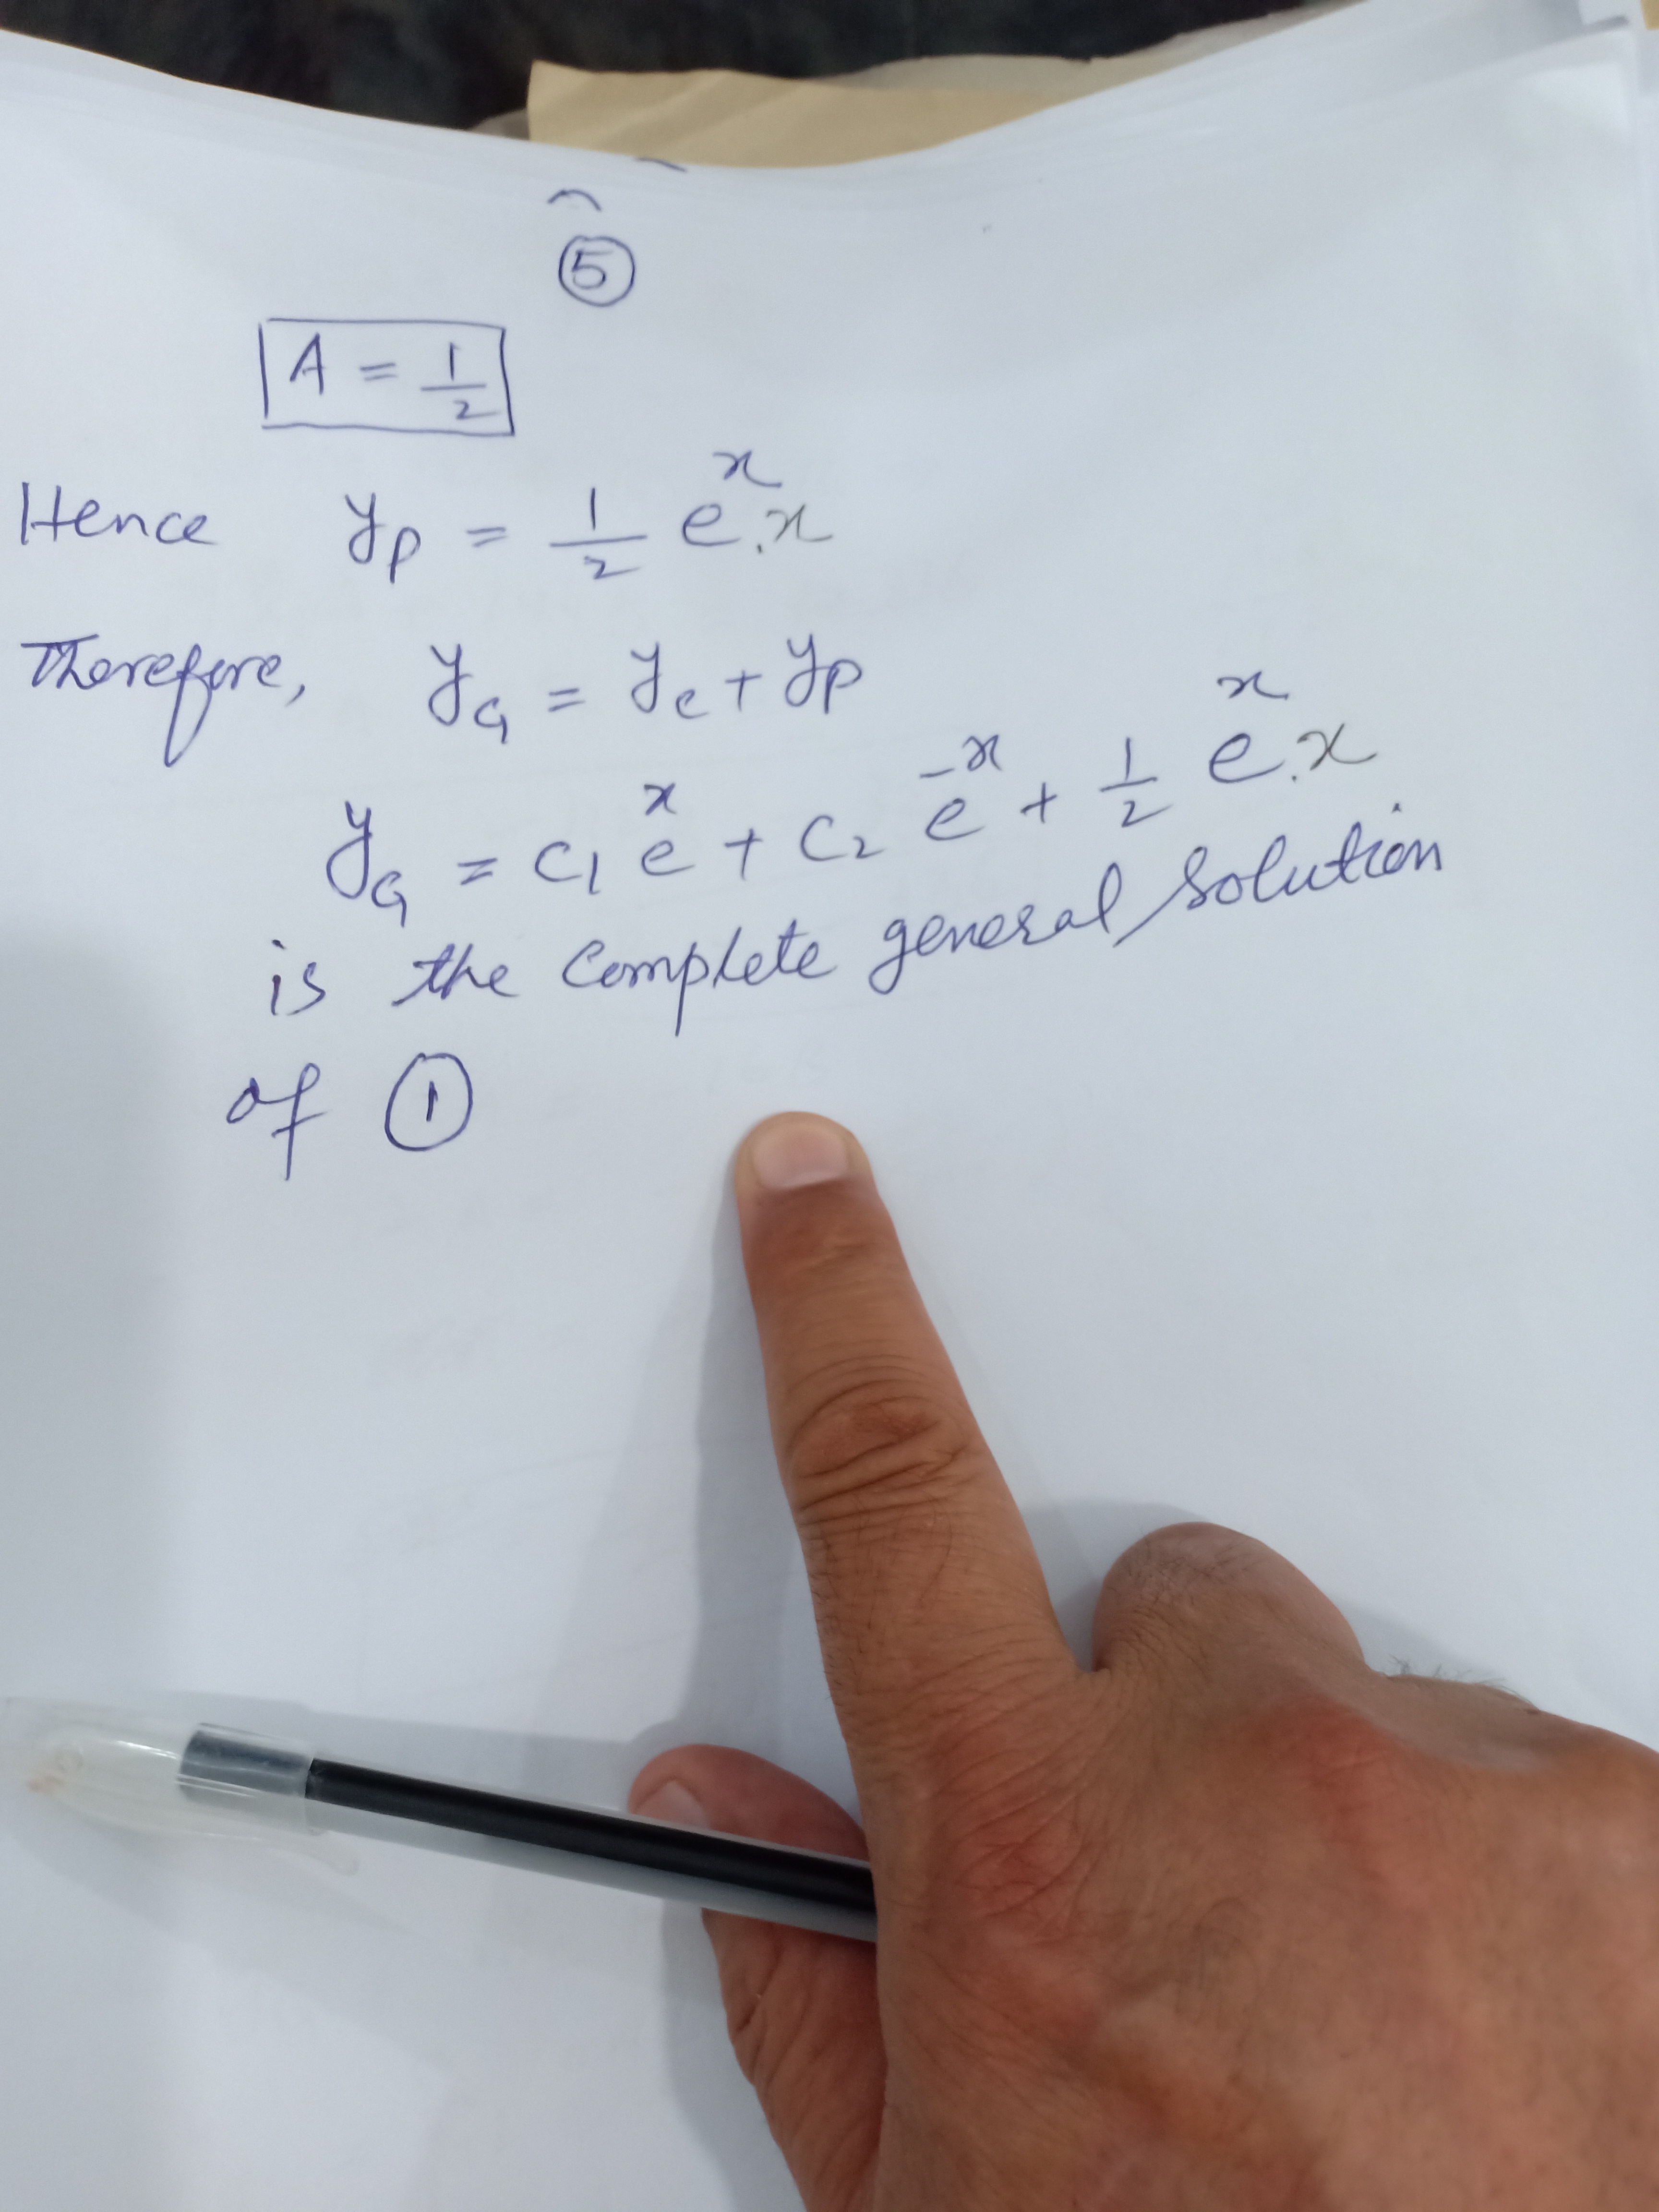 ⑤
A = 1/2
Hence y_p = 1/2 e^x . x
Therefore, y_G = y_c + y_p
y_G = c_1 e^x + c_2 e^-x + 1/2 e^x . x
is the complete general solution
of ①